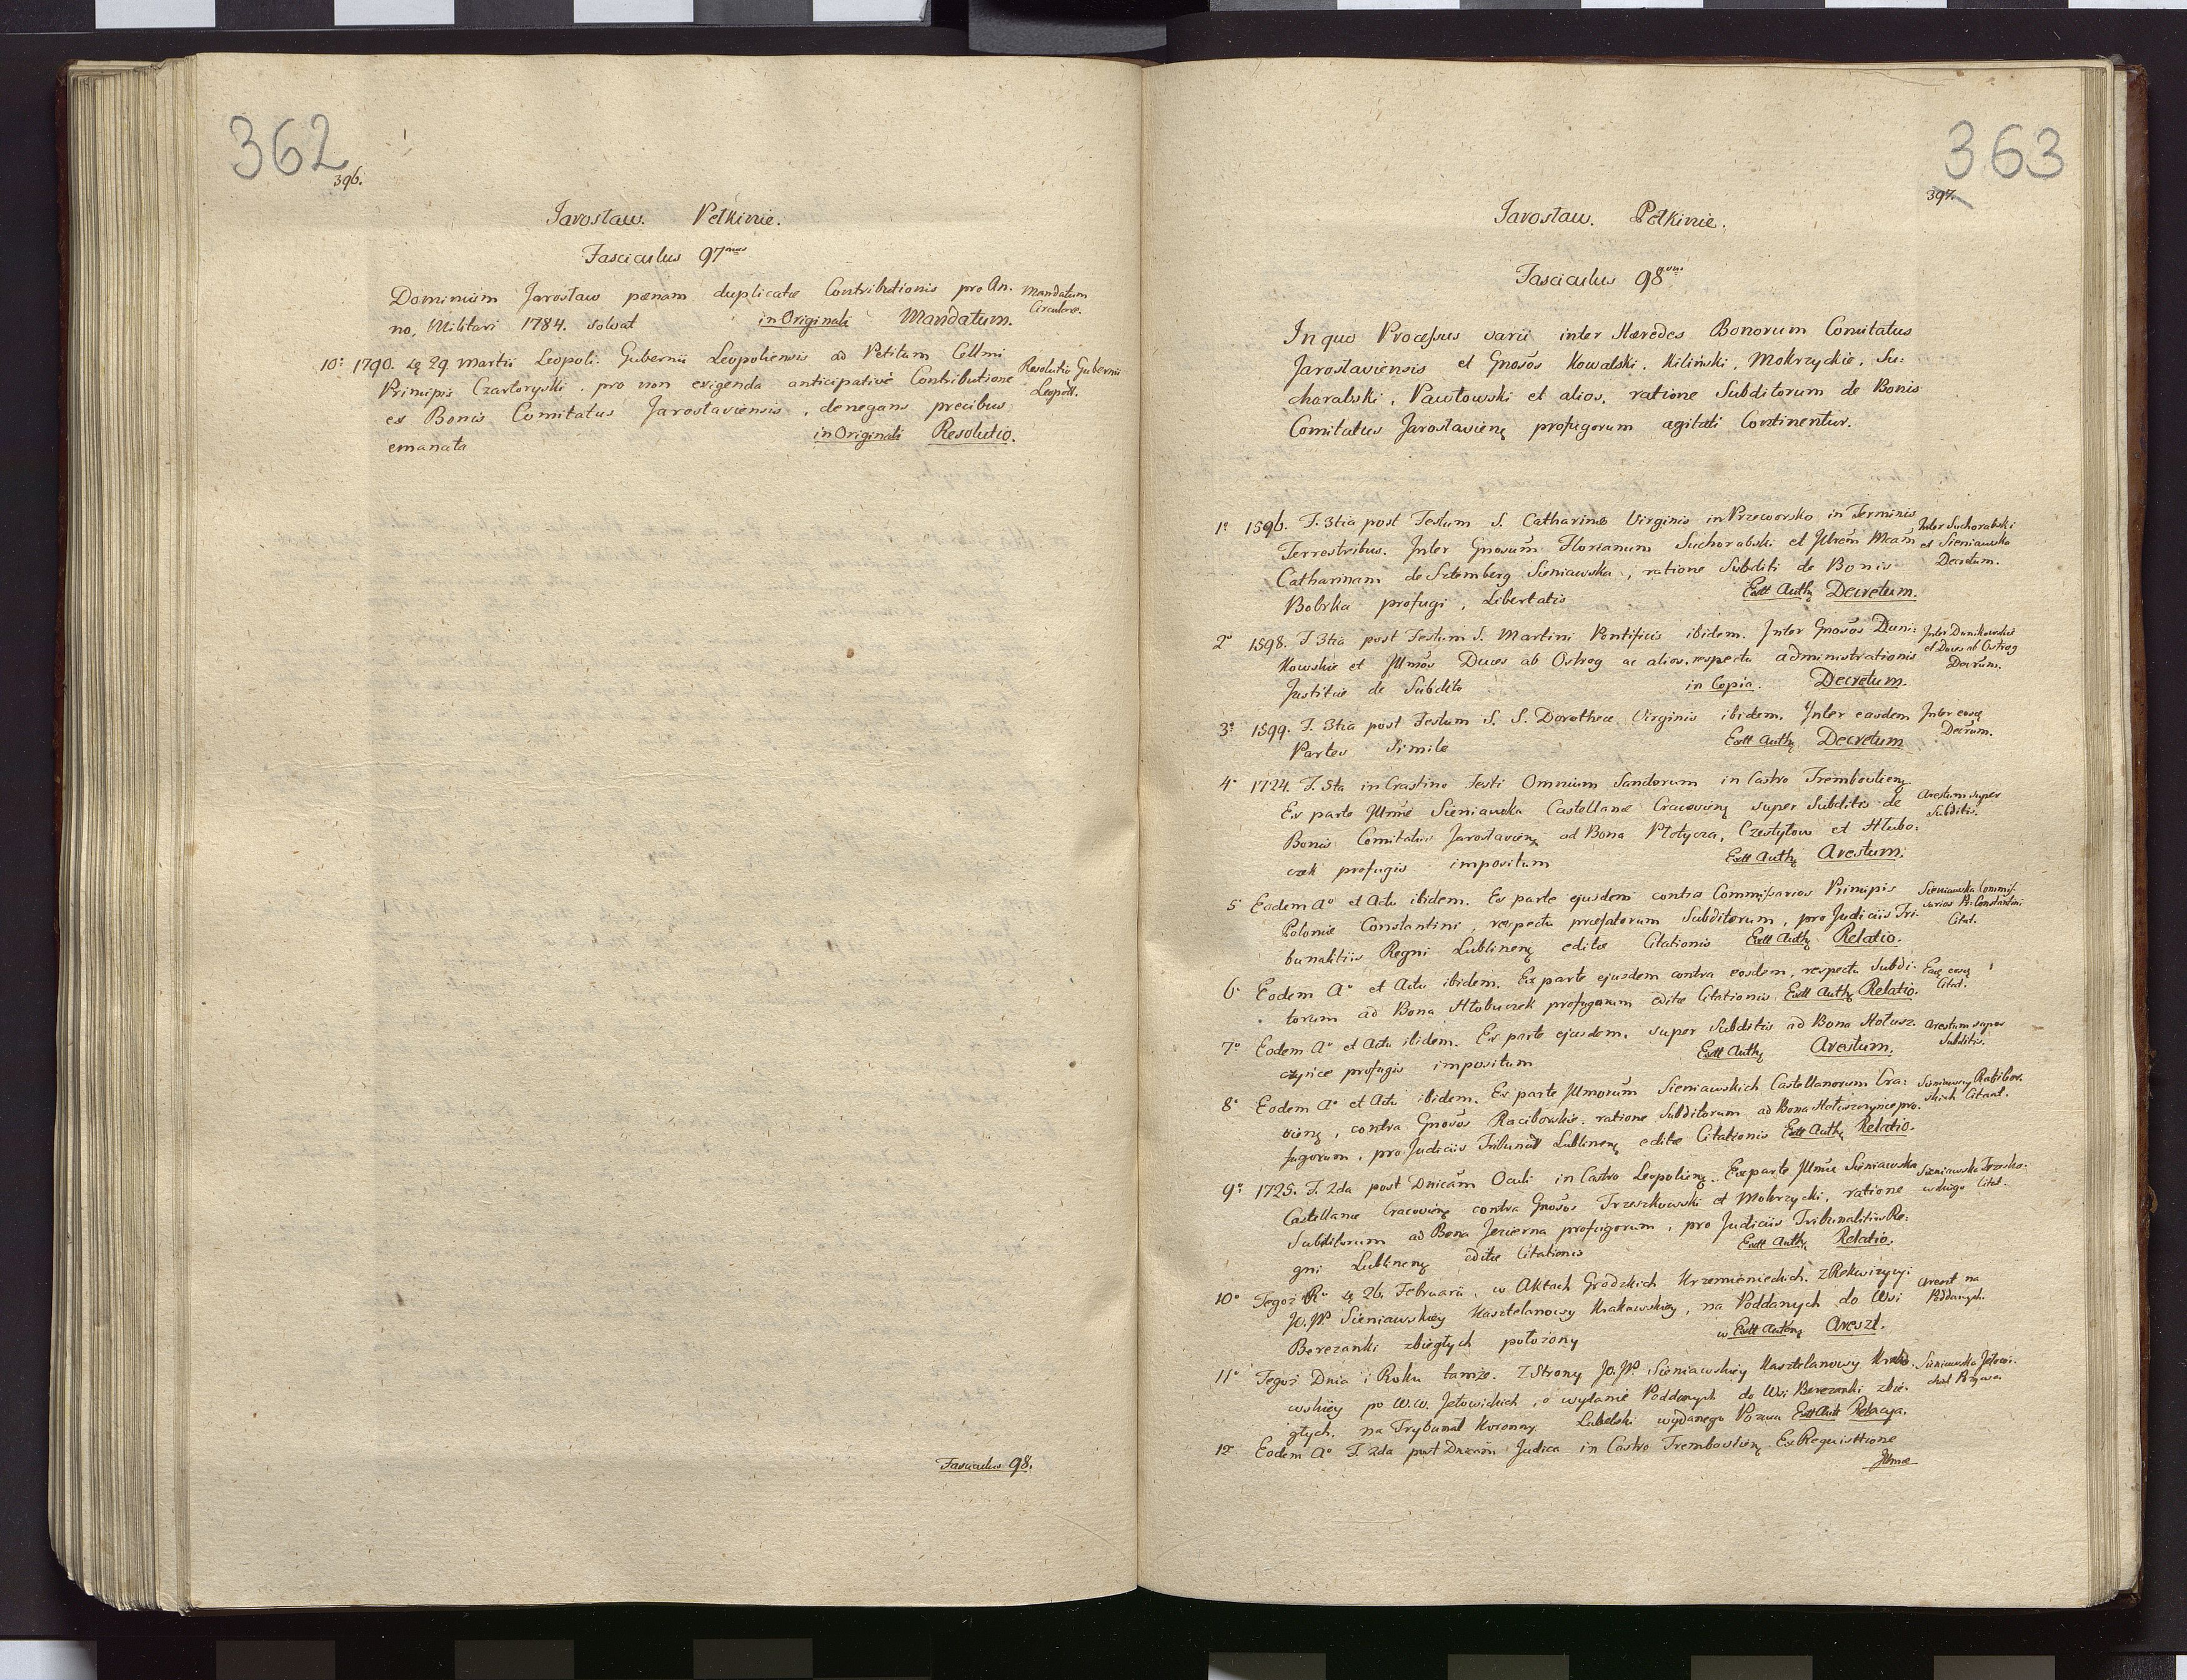 362
396.
Jarosław. Pełkinie.
Fasciculus 97mus
Dominium Jarosław pœnam duplicatæ Contributionis pro An-
no, Militari 1784. solvat in Originali Mandatum.
Mandatum
Circulare.
10º 1790. 29 Martii Leopoli. Gubernii Leopoliensis ad Petitum Cellmi
Principis Czartoryski, pro non exigenda anticipativè Contributione
ex Bonis Comitatus Jarosłaviensis, denegans precibus
emanata in Originali Resolutio.
Resolutio Gubernii
Leopoll.
Fasciculus 98.
363
397.
Jarosław. Pełkinie.
Fasciculus 98vus
In quo Processus varii inter Hæredes Bonorum Comitatus
Jarosłaviensis et Gnosos Kowalski, Kiliński, Mokrzyckie, Su:
chorabski, Pawłowski et alios, ratione Subditorum de Bonis
Comitatus Jarosłavienę profugorum agitati Continentur.
1º 1596. F. 3tia post Festum S. Catharinæ Virginis in Przeworsko in Terminis
Terrestribus. Inter Gnosum Florianum Suchorabski et Illrem Mcam
Catharinam de Sztemberg Sieniawska, ratione Subditi de Bonis
Bobrka profugi, Libertatis Extt Authę Decretum.
Inter Suchorabski
et Sieniawska
Decretum.
2º 1598. F. 3tia post Festum S. Martini Pontificis ibidem. Inter Gnosos Duni:
kowskie et Illmos Duces ab Ostrog ac alios, respectu administrationis
Justitiæ de Subdito in Copia. Decretum.
Inter Dunikowskie
et Duces ab Ostrog
Decrum.
3º 1599. F. 3tia post Festum S. S. Dorotheæ Virginis ibidem. Inter easdem
Partes Simile Extt Authę Decretum
Inter eosę
Decrum.
4º 1724. F. 5ta in Crastino Festi Omnium Sanctorum in Castro Trembovlienę
Ex parte Illmæ Sieniawska Castellanæ Cracovienę super Subditis de
Bonis Comitatus Jarosłavienę ad Bona Płotycza, Czestyłow et Hłubo:
czek profugis impositum Extt Authę Arestum.
Arestum super
Subditis.
5º Eodem Aº et Actu ibidem. Ex parte ejusdem contra Commissarios Principis
Poloniæ Constantini, respectu præfatorum Subditorum, pro Judiciis Tri-
bunalitiis Regni Lublinenę editæ Citationis Extt Authę Relatio.
Sieniawska Commis-
sarios Pr. Constantini
Citat.
6º Eodem Aº et Actu ibidem. Ex parte ejusdem contra eosdem, respectu Subdi-
torum ad Bona Hłoboczek profugorum editæ Citationis Extt Authę Relatio.
Eadę eosę
Citat.
7º Eodem Aº et Actu ibidem. Ex parte ejusdem, super Subditis ad Bona Hołusz-
czynce profugis impositum Extt Authę Arestum.
Arestum super
Subditis.
8º Eodem Aº et Actu ibidem. Ex parte Illmorum Sieniawskich Castellanorum Cra:
vienę, contra Gnosos Raciborskie, ratione Subditorum ad Bona Hołuszczynce pro-
fugorum, pro Judiciis Tribunall Lublinenę editæ Citationis Extt Authę Relatio.
Sieniawscy Racibor-
skich Citant.
9º 1725. F. 2da post Dnicam Oculi in Castro Leopolienę. Ex parte Illmæ Sieniawska
Castellanæ Cracovienę contra Gnosos Trzeszkowski et Mokrzycki, ratione
Subditorum ad Bona Jezierna profugorum, pro Judiciis Tribunalitiis Re:
gni Lublinenę editæ Citationis Extt Authę Relatio.
Sieniawska Trzesko-
wskiego Citat.
10º Tegoż Rº 26 Februarii, w Aktach Grodzkich Krzemienieckich. Z Rekwizycyi
Jo. W. Sieniawskiey Kasztelanowy Krakowskiey, na Poddanych do Wsi
Berezanki zbiegłych położony w Extt Authę Areszt.
Areszt na
Poddanych.
11º Tegoż Dnia i Roku tamże. Z Strony Jo. W. Sieniawskiey Kasztelanowy Krako-
wskiey po W.W. Jełowickich, o wydanie Poddanych do Wsi Berezanki zbie-
głych, na Trybunał Koronny Lubelski wydanego Pozwu Extt Auth Relacya.
Sieniawska Jełowi-
ckich Pozywa
12 Eodem Aº F. 2da post Dnicam Judica in Castro Trembowlienę. Ex Requisitione
Illmæ